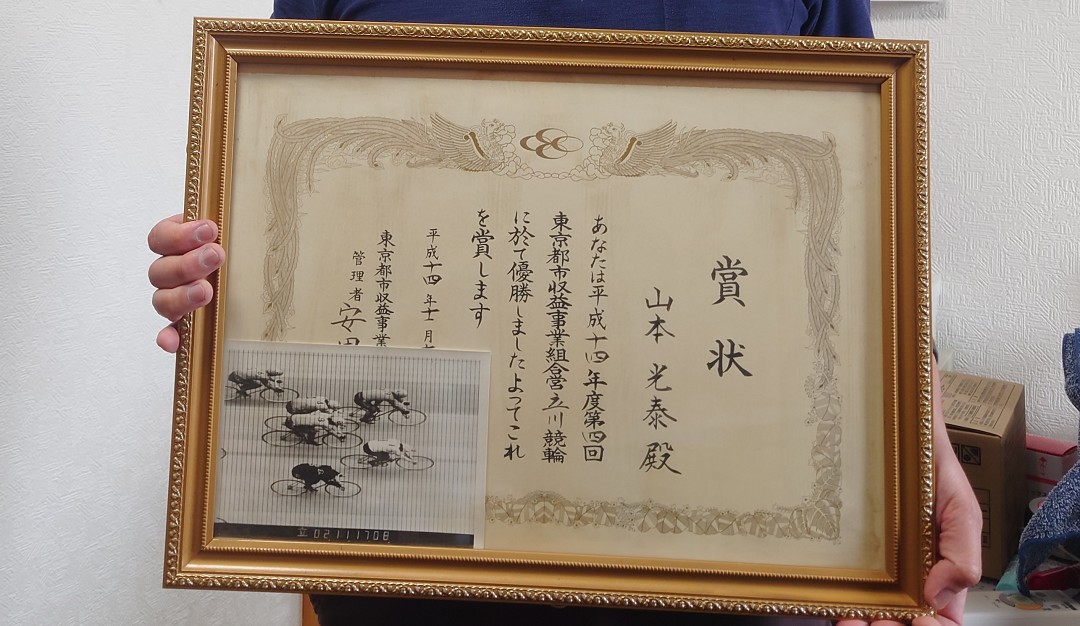 賞状
山本光泰殿
あなたは平成十四年度第四回
東京都市収益事業組合営立川競輪
に於て優勝しましたよってこれ
を賞します
平成十四年十一月
東京都市収益事業
管理者 安田
立 02111708